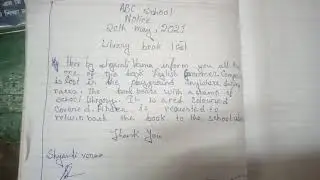 ABC School
Notice
20th may, 2021
Library book lost
I here by Shyanti Verma, inform you all
one of the book English Grammar
is lost in the playground during
The book bears with a stamp of
School library. It is a red coloured
covered. Finder is requested to
return back the book to the school
Thank You
Shyanti verma